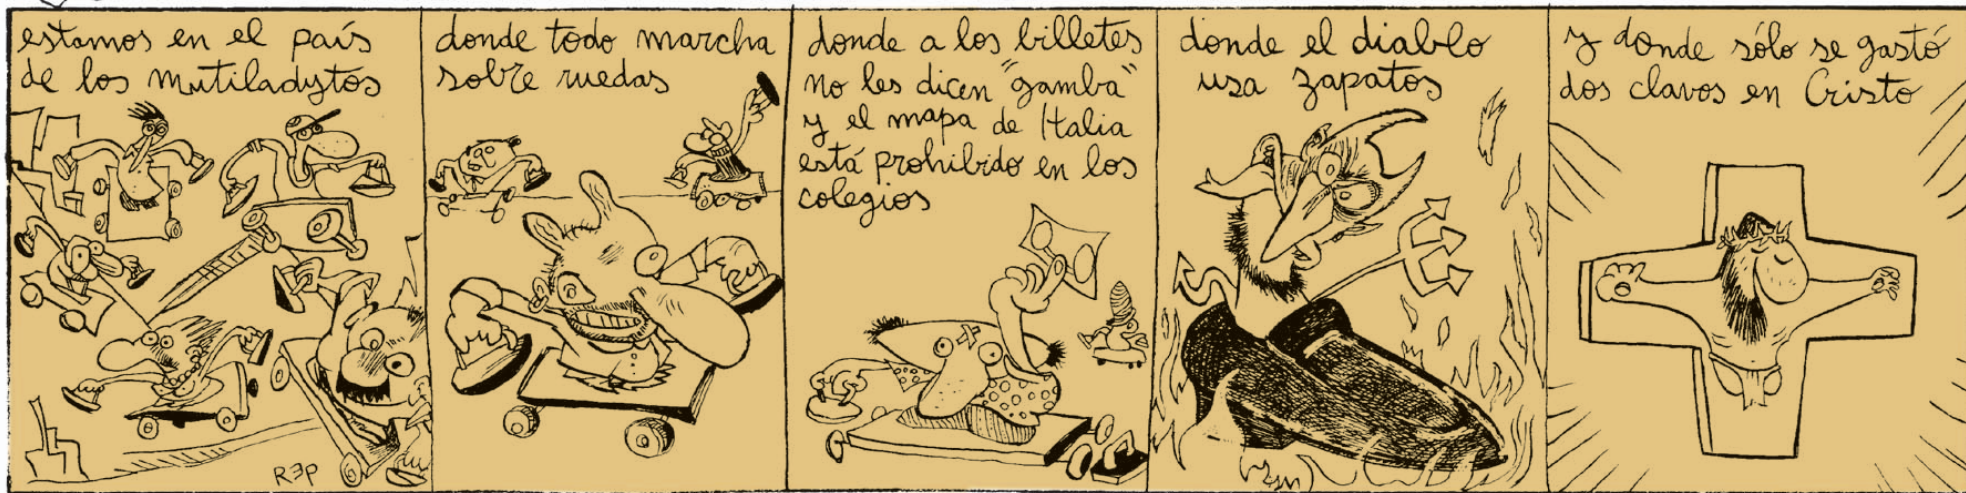 estamos en el país
de los mutiladytos
R3P
donde todo marcha
sobre ruedas
donde a los billetes
no les dicen "gamba"
y el mapa de Italia
está prohibido en los
colegios
donde el diablo
usa zapatos
y donde sólo se gastó
dos clavos en Cristo